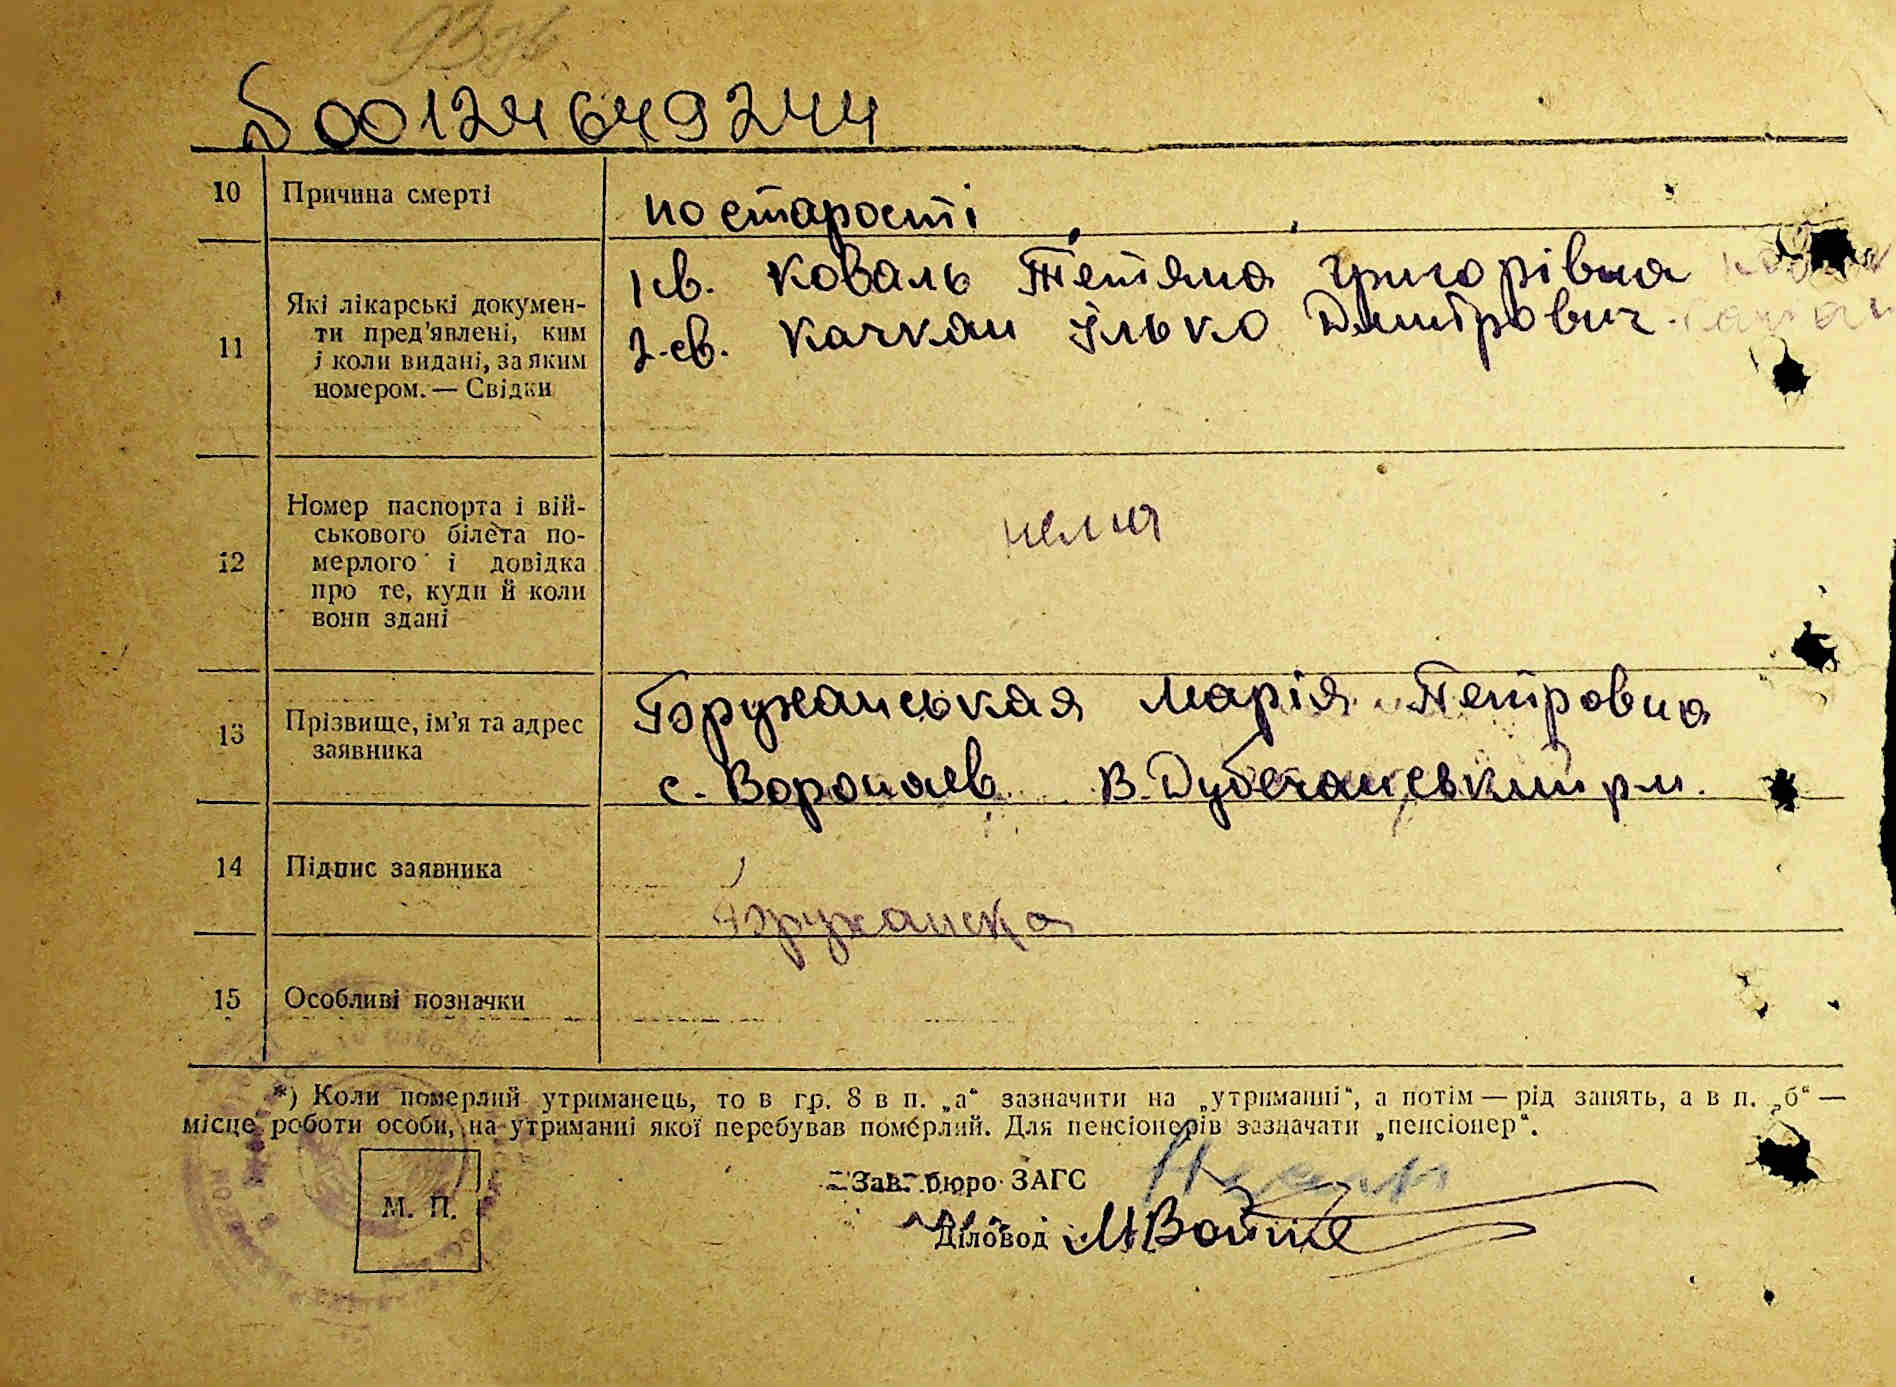 S00124649244
10 Причина смерті
по старості
11 Які лікарські докумен-
ти пред'явлені, ким
і коли видані, за яким
номером. — Свідки
1 св. Коваль Тетяна Григорівна
2. св. Качкан Ілько Дмитрович
12 Номер паспорта і вій-
ськового білета по-
мерлого і довідка
про те, куди й коли
вони здані
нема
13 Прізвище, ім'я та адрес
заявника
Бружанськая Марія Петровна
с. Воропаєв В. Дубечанський р-н.
14 Підпис заявника
Бружанска
15 Особливі позначки
*) Коли померлий утриманець, то в гр. 8 в п. „а“ зазначити на „утриманні“, а потім — рід занять, а в п. „б“ —
місце роботи особи, на утриманні якої перебував померлий. Для пенсіонерів зазначати „пенсіонер“.
М. П.
Зав. бюро ЗАГС
Діловод